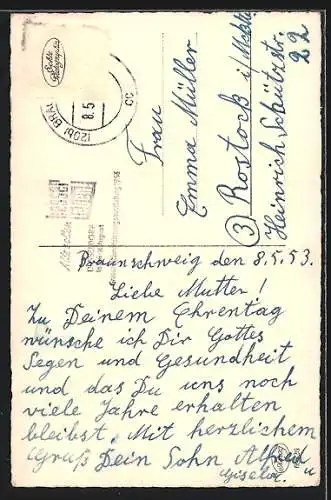 Echte Photographie
(20b) BRAU
8.5
cc
Frau
Emma Müller
③ Rostock i/Meckl.
Heinrich Schützstr.
22
Braunschweig den 8.5.53.
Liebe Mutter!
Zu Deinem Ehrentag
wünsche ich Dir Gottes
Segen und Gesundheit
und das Du uns noch
viele Jahre erhalten
bleibst. Mit herzlichem
Gruß Dein Sohn Alfred
u
Gisela.